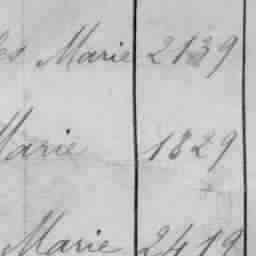 es Marie 2139
Marie 1829
Marie 2419